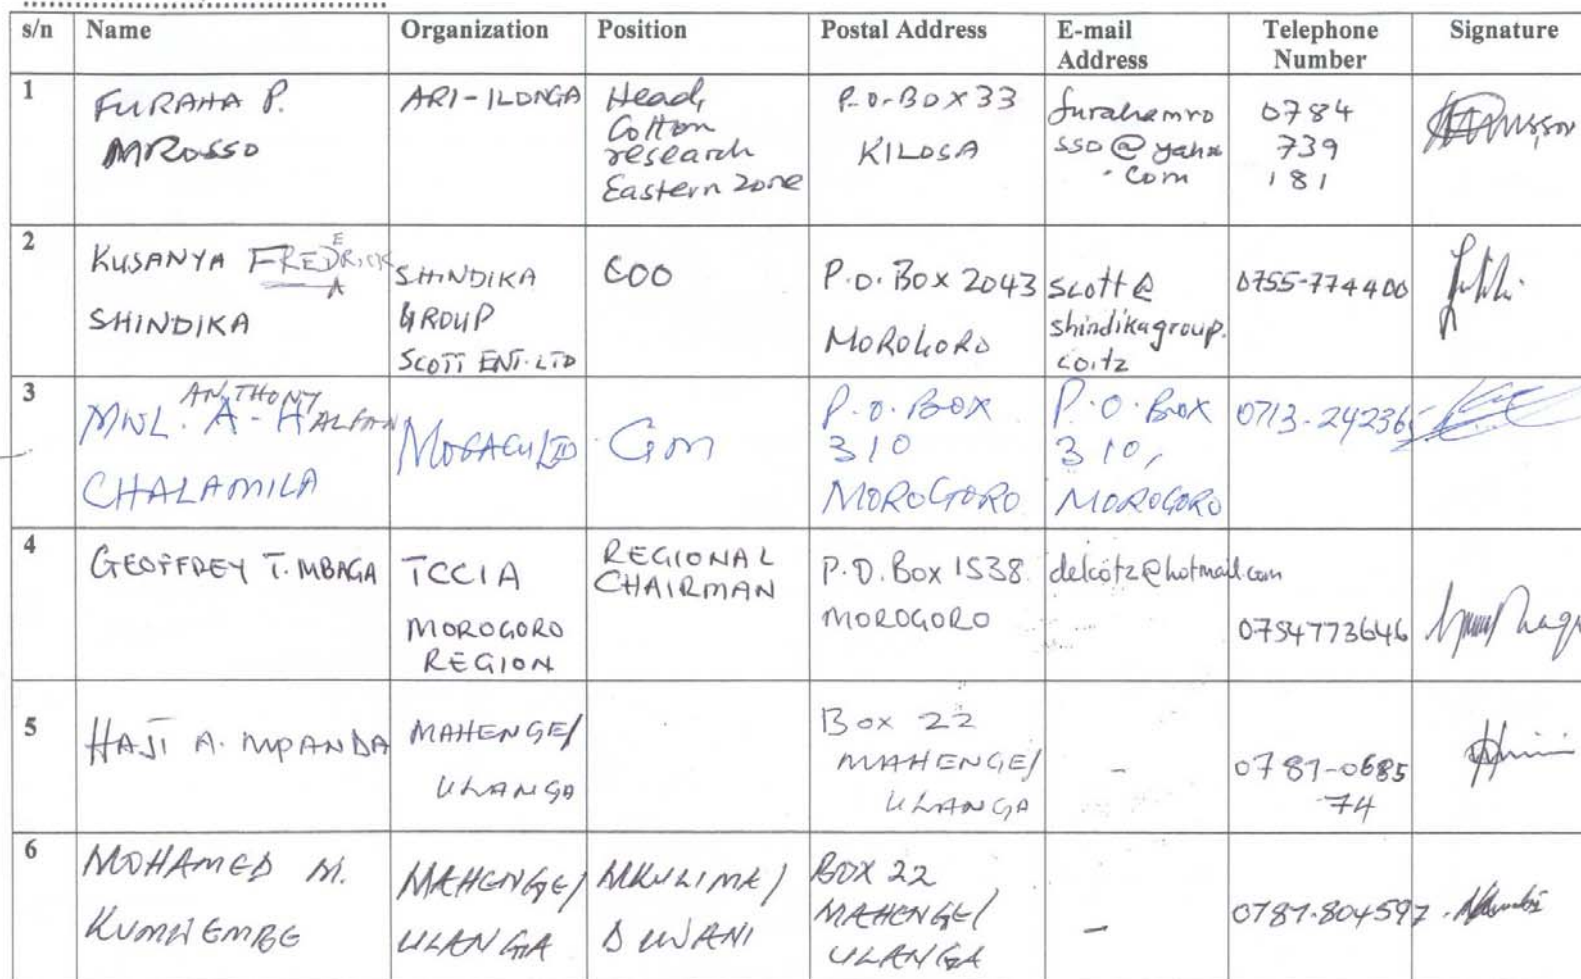 s/n Name Organization Position Postal Address E-mail Address Telephone Number Signature
1 FURAHA P. MROSSO ARI-ILONGA Head, Cotton research Eastern Zone P.O. BOX 33 KILOSA furahamrosso@yahoo.com 0784 739 181
2 KUSANYA FREDRICK E A SHINDIKA SHINDIKA GROUP SCOTT ENT. LTD COO P.O. Box 2043 MOROGORO scott@shindikagroup.co.tz 0755-774400
3 MWL. A-HALFAN ANTHONY CHALAMILA LTD GM P.O. BOX 310 MOROGORO P.O. Box 310, MOROGORO 0713-24236
4 GEOFFREY T. MBAGA TCCIA MOROGORO REGION REGIONAL CHAIRMAN P.O. Box 1538 MOROGORO delcotz@hotmail.com 0754773646
5 HAJI A. MPANDA MAHENGE/ ULANGA Box 22 MAHENGE/ ULANGA - 0787-0685 -74
6 MOHAMED M. KUMWEMBE MAHENGE/ ULANGA MKULIMA/ DIWANI BOX 22 MAHENGE/ ULANGA - 0787-804597